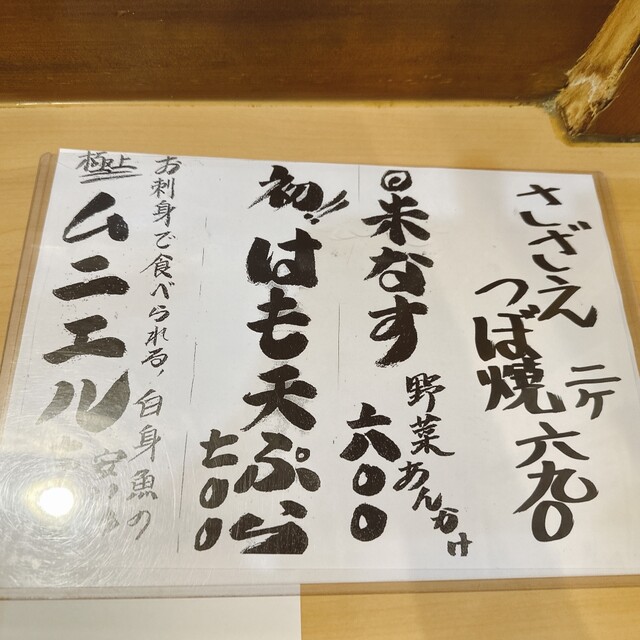 さざえ
つぼ焼
二ケ
六九〇
◎米なす
野菜あんかけ
六〇〇
初!!
はも天ぷら
七〇〇
お刺身で食べられる!白身魚の
極上
ムニエル